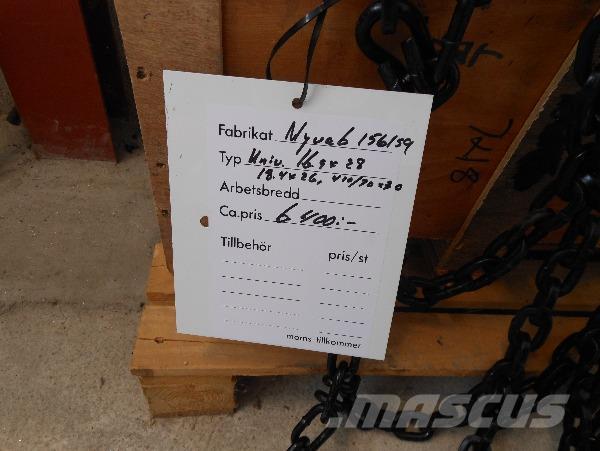 Fabrikat Nyvab 156159
Typ Univ. 16.9x28
18.4x26,
Arbetsbredd
Ca.pris 6400:-
Tillbehör pris/st
moms tillkommer
MASCUS